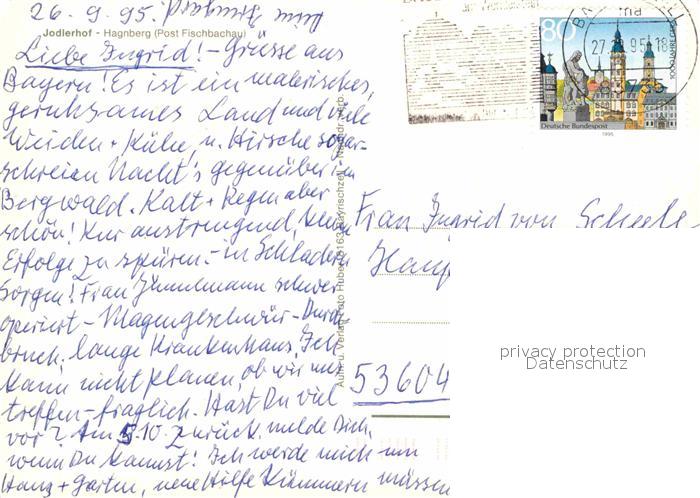 26.9.95.
Jodlerhof - Hagnberg (Post Fischbachau)
Liebe Ingrid! - Grüsse aus
Bayern! Es ist ein malerisches,
geruhsames Land und viele
Weiden + Kühe, u. Hirsche sogar
schreien Nacht's gegenüber im
Bergwald. Kalt + Regen aber
schön! Kur anstrengend, keine
Erfolge zu spüren - in Schladern
Sorgen! Frau schwer
operiert - Magengeschwür - Durch
bruch. lange Krankenhaus, Ich
kann nicht planen, ob wir uns
treffen - fraglich. Hast Du viel
vor? Am 5.10. zurück. melde Dich,
wenn Du kannst! Ich werde mich um
Haus + Garten, neue Hilfe kümmern müssen
80
27
95-18
1000 JAHRE
Deutsche Bundespost
1995
Frau Ingrid von Scheele
Haup
53604
privacy protection
Datenschutz